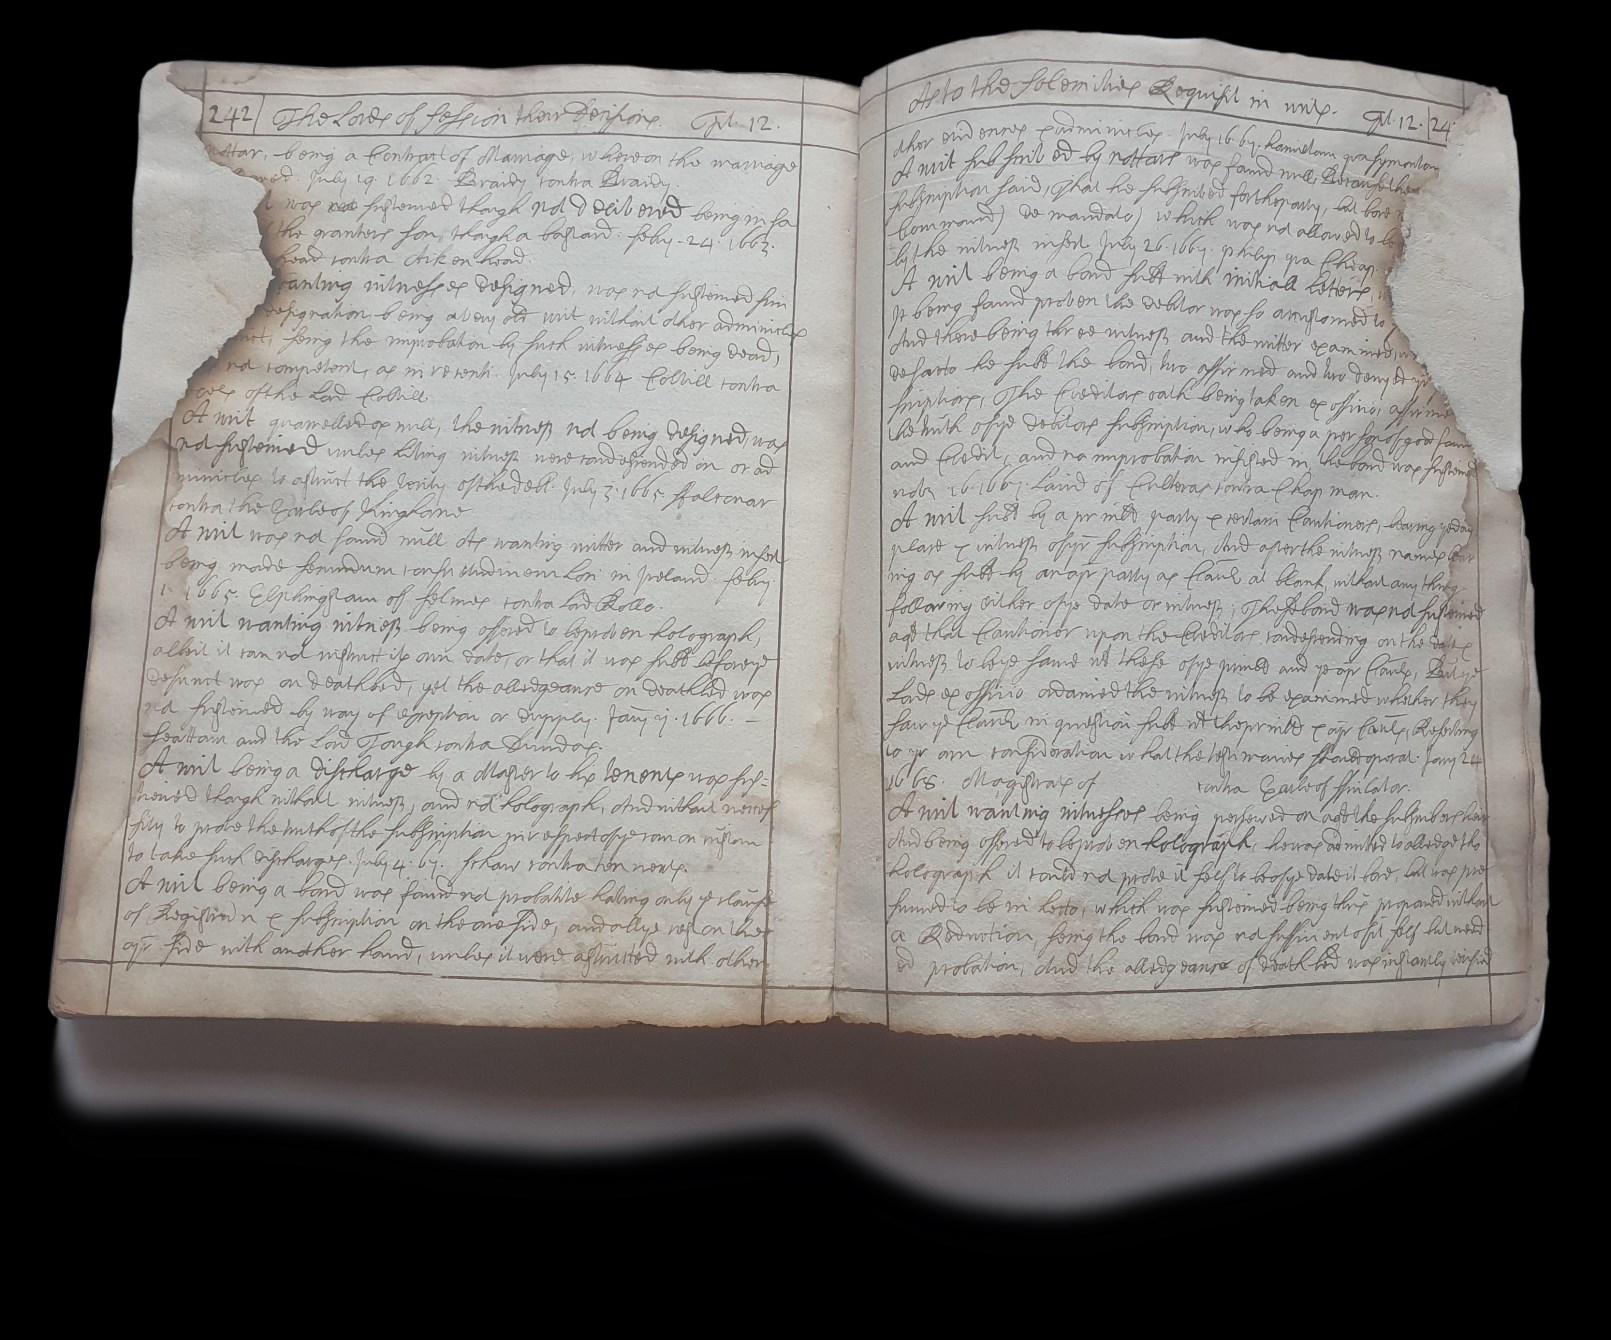 242 The Lords of Session their Decisions. Tit. 12.
nottar, being a Contract of Marriage, whereon the marriage
July 19. 1662. Braidy contra Braidy.
was not sustained though not delivered being in ha
the granters son, though a bastard. feby. 24. 1663.
head contra Aikenhead.
wanting witnesses designed, was not sustained sin
designation, being a very old writ without other adminicles
seing the improbation by such witnesses being dead,
not competent, as in recenti. July 15. 1664 Colvill contra
of the Lord Colvill
A writ quarrelled as null, the witness not being designed, was
not sustained unless living witness were condescended on or ad
minicles to astruct the verity of the debt. July 3. 1665. ffalconar
contra the Earle of Kinghorne
A writ was not found null As wanting writter and witness insert
being made secundum consuetudinem loci in Ireland. feby.
1. 1665. Elphingstoun of Selmes contra Lord Rollo.
A writ wanting witness being offered to be proven holograph,
albeit it can not instruct its own date, or that it was subt before ye
defunct was on deathbed, yet the alledgeance on deathbed was
not sustained by way of exception or duplly. Jany 1666. —
Seattoun and the Lord Touch contra Dundas.
A writ being a discharge by a Master to his tenents was sus-
teined though without witness, and not holograph, And without neces
sity to prove the truth of the subscription in respect of ye common custom
to take such discharges. July 4. 67. Schaw contra tennents.
A writ being a band was found not probative having only ye clause
of Registration & subscription on the one side, and all ye rest on the
oyr side with another hand, unless it were astructed with other
As to the Solemnities Requisit in writs. Tit. 12. 24
other evidences & adminicles. July 16. 67. Hamiltoun qra Symonton
A writ subscrived by nottars was found null, Because the
subscription said, That he subscrived for the party, but bore n
Command) de mandato) which was not allowed to be
by the witness insert July 26. 1667. philip qra Cheap.
A writ being a band subt with initiall letters,
It being found proven the debtor was so accustomed to
And there being three witness and the writter examined,
de facto he subt the band, two affirmed and two denyed yr
scriptions, The Creditors oath being taken ex officio, affirme
the truth of ye debitors subscription, who being a person of good fame
and Credit, and no improbation insisted in, the band was sustened
novr. 16. 1667. Laird of Culteras contra Chapman.
A writ subt by a prinll party & certain Cautioners, bearing ye day
place & witness of yr subscription, And after the witness names bear
ing as subt by an oyr party as Caur at blank, without any thing
following either of ye date or witness; The se band was not sustened
agt that Cautioner upon the Creditors condescending on the date &
witness to be ye same wt these of ye prinll and ye oyr Caurs, But ye
Lords ex officio ordained the witness to be examined whether they
saw ye Caur in question subt wt the prinll & oyr Caurs, Reserving
to yr own consideration what the testimonies should operat. Jany 24
1668. Magistrats of contra Earle of ffinlator.
A writ wanting witnesses being persewed on agt the subscribers heir
And being offered to be proven holograph, he was admitted to alledge tho
holograph it could not prove it self to be of ye date it bore, but was pre
sumed to be in lecto, which was sustened being this proponed without
a Reduction, seing the band was not sufficient of it self but need
ed probation, And the alledgeance of death bed was instantly verified